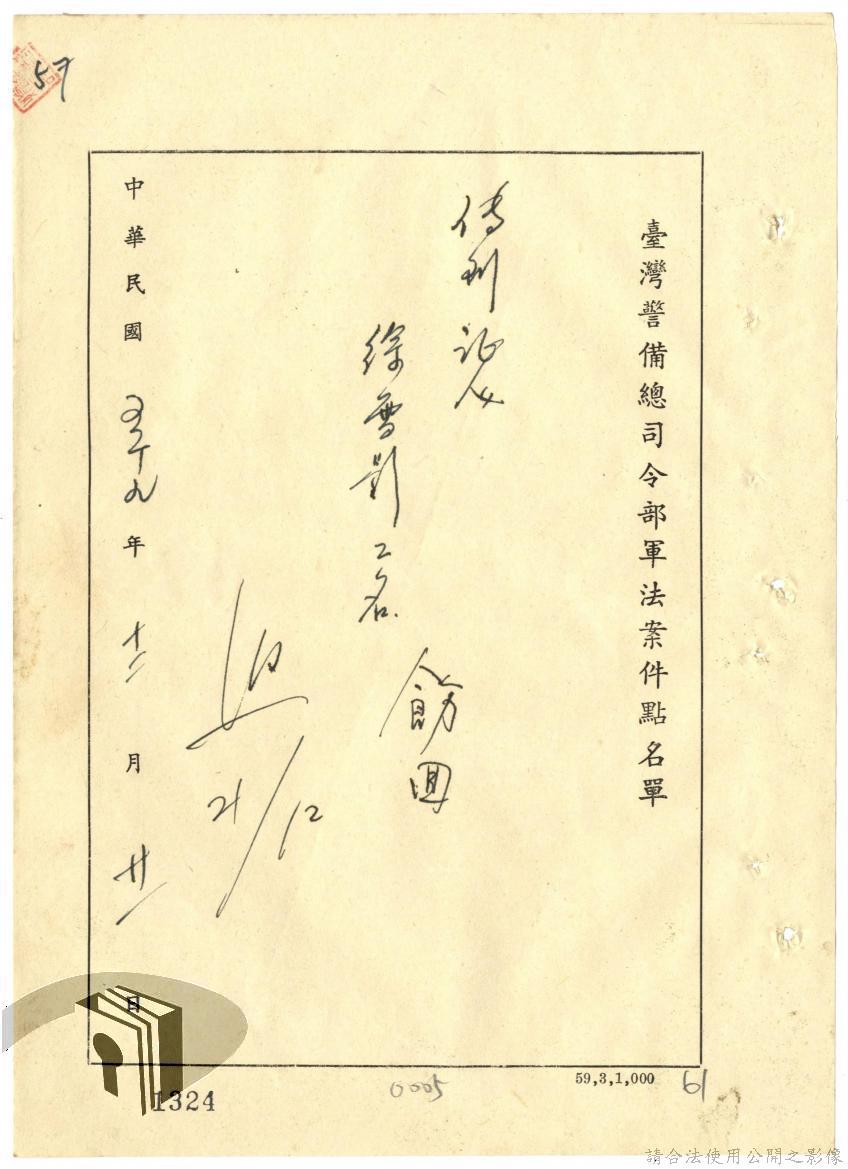 57
臺灣警備總司令部軍法案件點名單
傳到証人
徐雪影乙名
飭回
21/12
中華民國五十九年十二月廿一日
59,3,1,000
61
0005
1324
請合法使用公開之影像